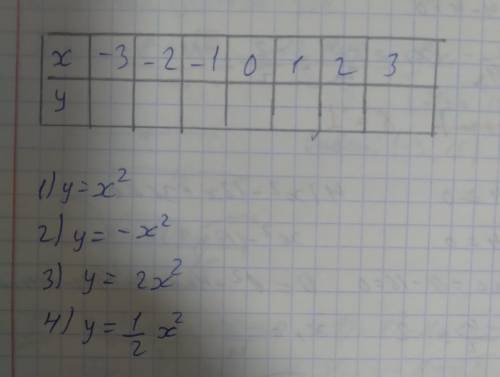 x -3 -2 -1 0 1 2 3
y
1) y = x²
2) y = -x²
3) y = 2x²
4) y = 1/2 x²